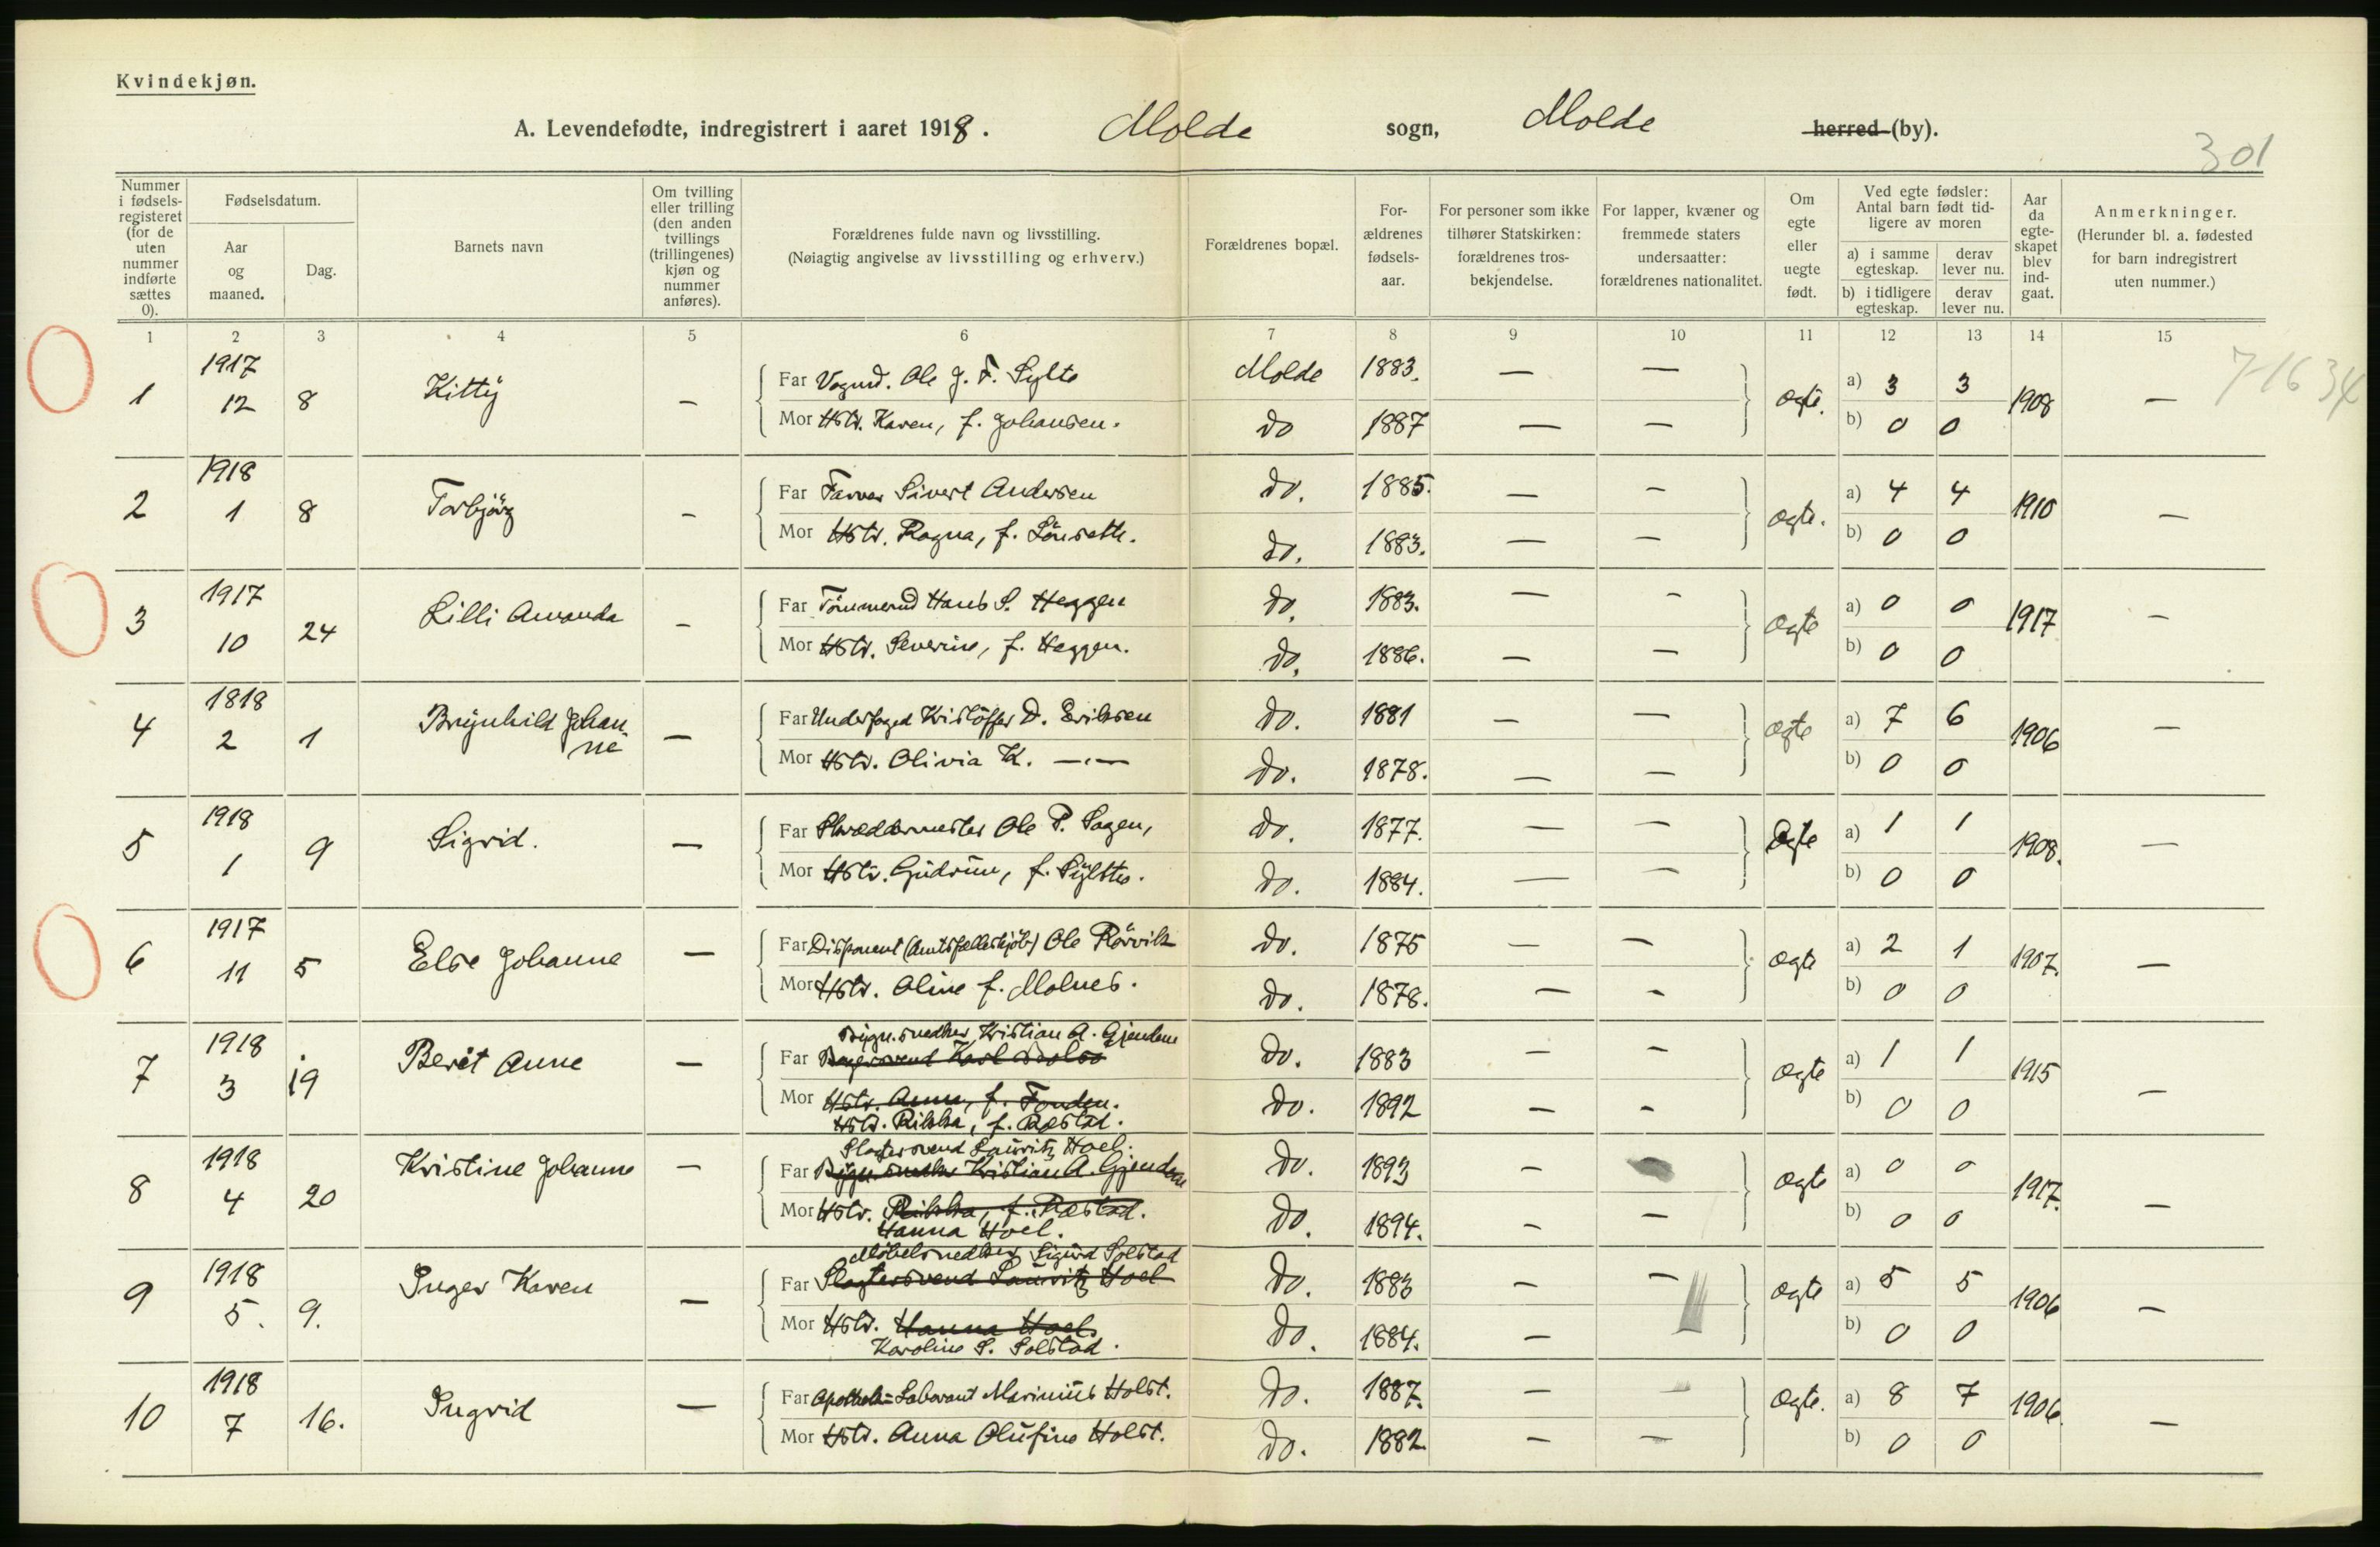 Kvindekjøn.
A. Levendefødte, indregistrert i aaret 1918. Molde sogn, Molde herred (by).
301
Nummer i fødselsregisteret (for de uten nummer indførte sættes 0).
Fødselsdatum.
Aar og maaned.
Dag.
Barnets navn
Om tvilling eller trilling (den anden tvillings (trillingenes) kjøn og nummer anføres).
Forældrenes fulde navn og livsstilling.
(Nøiagtig angivelse av livsstilling og erhverv.)
Forældrenes bopæl.
Forældrenes fødselsaar.
For personer som ikke tilhører Statskirken: forældrenes trosbekjendelse.
For lapper, kvæner og fremmede staters undersaatter: forældrenes nationalitet.
Om egte eller uegte født.
Ved egte fødsler: Antal barn født tidligere av moren
a) i samme egteskap. derav lever nu.
b) i tidligere egteskap. derav lever nu.
Aar da egteskapet blev indgaat.
Anmerkninger.
(Herunder bl. a. fødested for barn indregistrert uten nummer.)
1 2 3 4 5 6 7 8 9 10 11 12 13 14 15
7-16 34
1917
1 12 8 Kitty — Far Vognd. Ole J. F. Sylte Molde 1883. — — ægte. a) 3 3 1908 —
Mor Hstr. Karen, f. Johansen. do 1887 — — b) 0 0
1918
2 1 8 Torbjörg — Far Farver Sivert Andersen do. 1885. — — ægte. a) 4 4 1910 —
Mor Hstr. Ragna, f. Lönsethe. do. 1883. — — b) 0 0
1917
3 10 24 Lilli Amanda — Far Tömmermd Hans S. Heggen do. 1883. — — ægte a) 0 0 1917 —
Mor Hstr. Severine, f. Heggen. do. 1886. — — b) 0 0
1818
4 2 1 Brynhild Johanne — Far Underfoged Kristoffer D. Eriksen do. 1881 — — ægte a) 7 6 1906 —
Mor Hstr. Olivia K. —"— do. 1878. — — b) 0 0
1918
5 1 9 Sigrid. — Far Skræddermester Ole P. Sagen, do. 1877. — — Ægte a) 1 1 1908. —
Mor Hstr. Gudrun, f. Syltte. do. 1884. — — b) 0 0
1917
6 11 5 Else Johanne — Far Disponent (Amtsfelleskjöb) Ole Rörvik do. 1875 — — ægte a) 2 1 1907. —
Mor Hstr. Oline f. Molnes. do. 1878. — — b) 0 0
Bygn.snedker Kristian A. Gjendem
1918
7 3 19 Berit Anne — Far Bagersvend Karl do. 1883 — — ægte a) 1 1 1915 —
Mor Hstr. Anna, f. Fonden. do. 1892 — — b) 0 0
Hstr. Rikka, f. Ræstad.
Slagtersvend Lauritz Hoel.
1918
8 4 20 Kristine Johanne — Far Bygn.snedker Kristian A. Gjendem do. 1893 — ægte a) 0 0 1917. —
Mor Hstr. Rikka, f. Ræstad. do. 1894. — — b) 0 0
Hanna Hoel.
Möbelsnedker Sigurd Solstad
1918
9 5. 9. Inger Karen — Far Slagtersvend Lauritz Hoel do. 1883 — — ægte a) 5 5 1906 —
Mor Hstr. Hanna Hoel. do. 1884. — b) 0 0
Karoline S. Solstad.
1918
10 7 16. Ingrid — Far Apothek-Laborant Marinius Holst. do. 1887. — — ægte. a) 8 7 1906. —
Mor Hstr. Anna Olufine Holst. do. 1882. — — b) 0 0